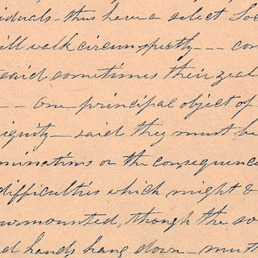 iduals thus have a select Soc
ill walk circumspectly -- con
said sometimes their zeal
-- One principal object of
iquity - said they must be
minations or the consequence
difficulties which might &
urmounted, though the so
d hands hang down - must